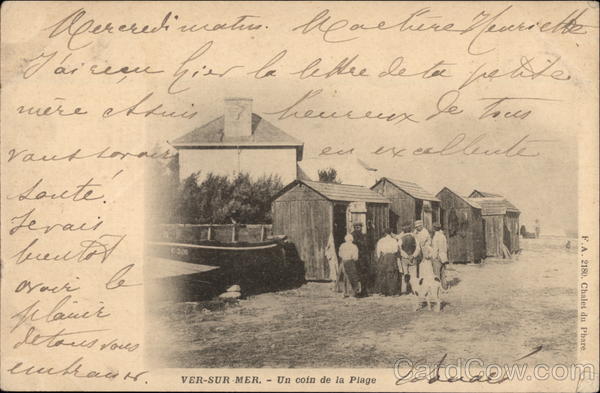 Mercredi matin. Ma chère Henriette
J'ai reçu hier la lettre de ta petite
mère et suis heureux de tous
vous savoir en excellente
santé.
Je vais
bientôt
avoir le
plaisir
de tous vous
embrasser.
F. A. 2180. Chalet du Phare
VER-SUR-MER. - Un coin de la Plage
CardCow.com